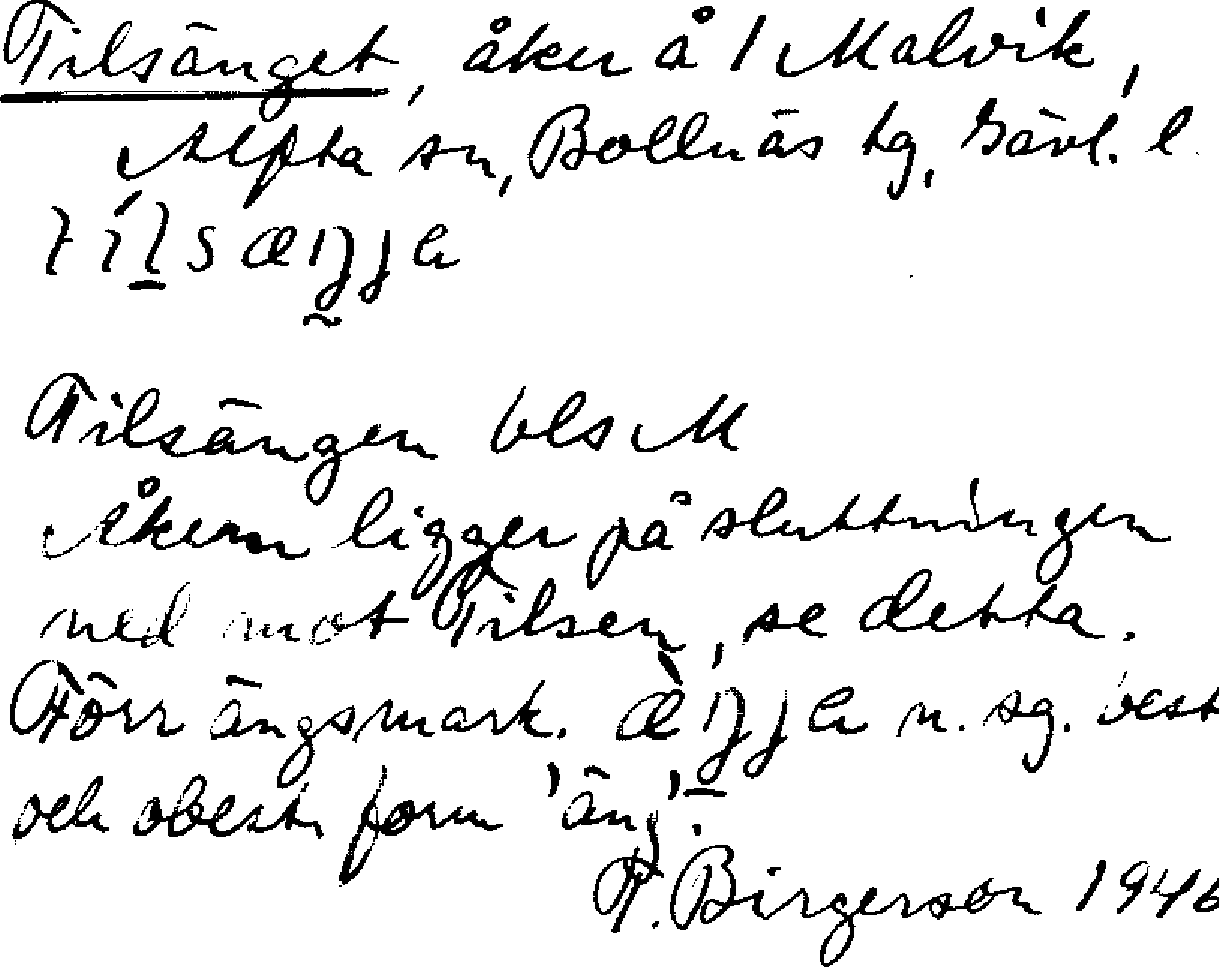 Tilsänget, åker å 1 Malvik,
Alfta sn, Bollnäs tg, Gävl. l.
Tilsängen bls M
Åkern ligger på sluttningen
ned mot Tilsen, se detta.
Förr ängsmark. n. sg. best
och obest form 'äng'.
T. Birgerson 1946